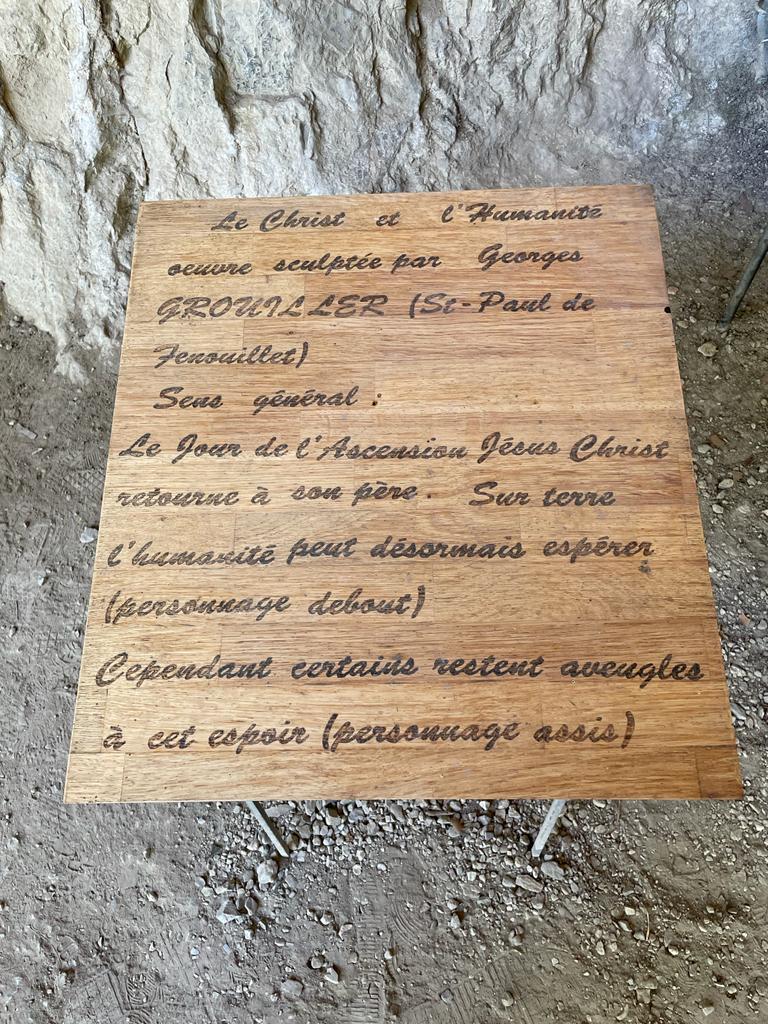 Le Christ et l'Humanité
oeuvre sculptée par Georges
GROUILLER (St-Paul de
Fenouillet)
Sens général :
Le Jour de l'Ascension Jésus Christ
retourne à son père. Sur terre
l'humanité peut désormais espérer
(personnage debout)
Cependant certains restent aveugles
à cet espoir (personnage assis)